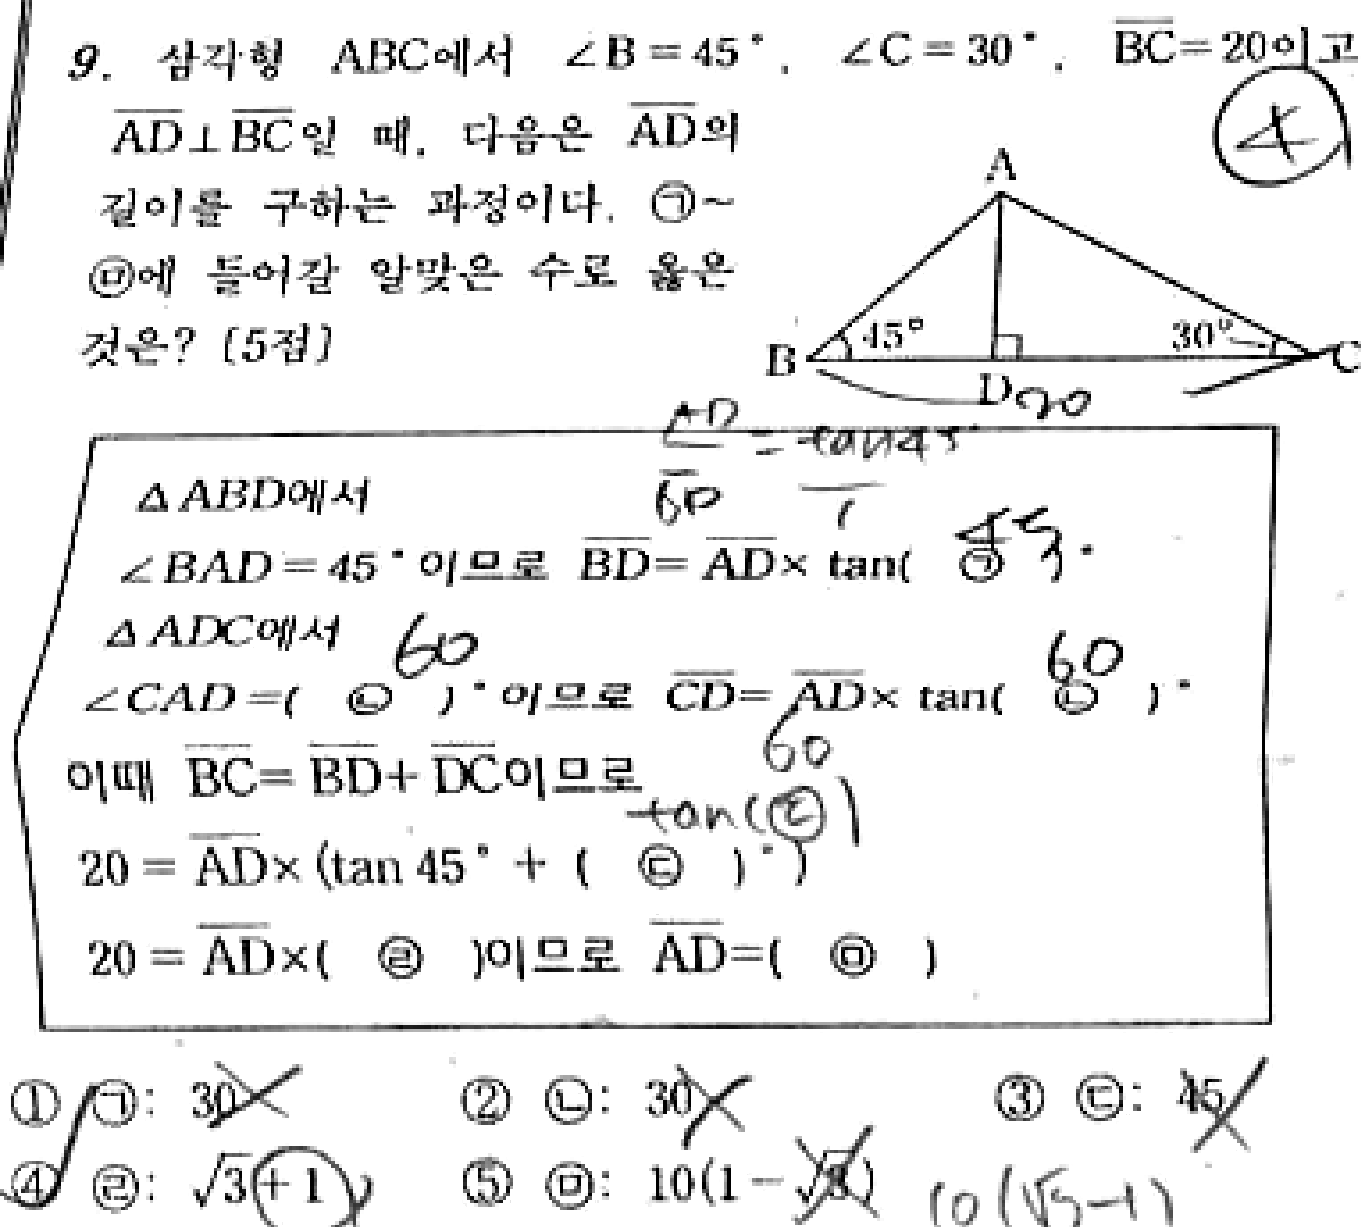 9. 삼각형 ABC에서 ∠B=45°, ∠C=30°, BC=20이고
④
AD⊥BC일 때, 다음은 AD의
길이를 구하는 과정이다. ㉠~
㉤에 들어갈 알맞은 수로 옳은
것은? (5점)
A
45° 30°
B D C
20
AD/BD = tan45/1
△ABD에서
45
∠BAD=45°이므로 BD=AD×tan( ㉠ )°
△ADC에서 60 60
∠CAD=( ㉡ )°이므로 CD=AD×tan( ㉡ )°
60
이때 BC=BD+DC이므로
tan(㉢)
20=AD×(tan 45°+( ㉢ )°)
20=AD×( ㉣ )이므로 AD=( ㉤ )
① ㉠: 30 ② ㉡: 30 ③ ㉢: 45
④ ㉣: √3+1 ⑤ ㉤: 10(1-√3) 10(√3-1)